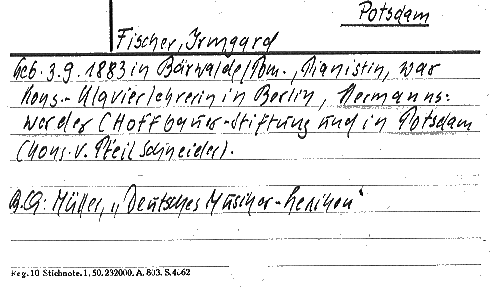 Potsdam
Fischer, Irmgard
Geb. 3.9.1883 in Bärwalde/Pom., Pianistin, war
Kons.-Klavierlehrerin in Berlin, Hermanns-
werder (Hoffbauer-Stiftung und in Potsdam
(Kons. v. Pfeil Schneider).
Müller, „Deutsches Musiker-Lexikon"
Reg. 10 Stichnote. 1, 50. 232000. A. 803. S. 4662